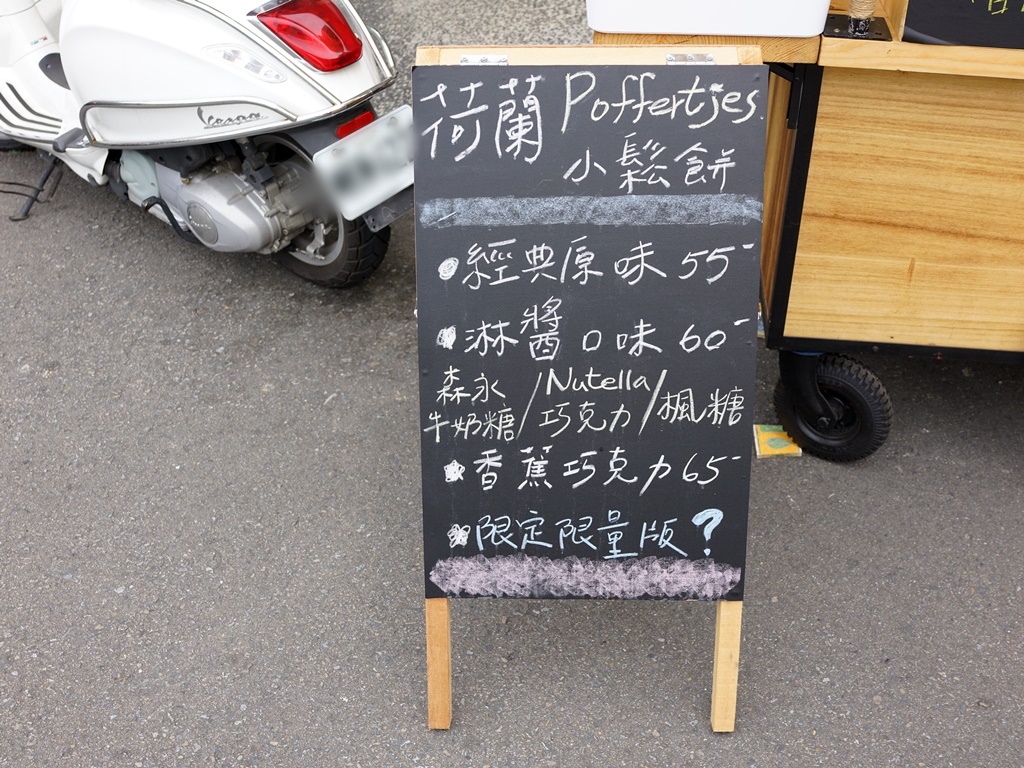 Vespa
荷蘭 Poffertjes.
小鬆餅
經典原味 55-
淋醬口味 60-
森永牛奶糖/Nutella巧克力/楓糖
香蕉巧克力 65-
限定限量版?